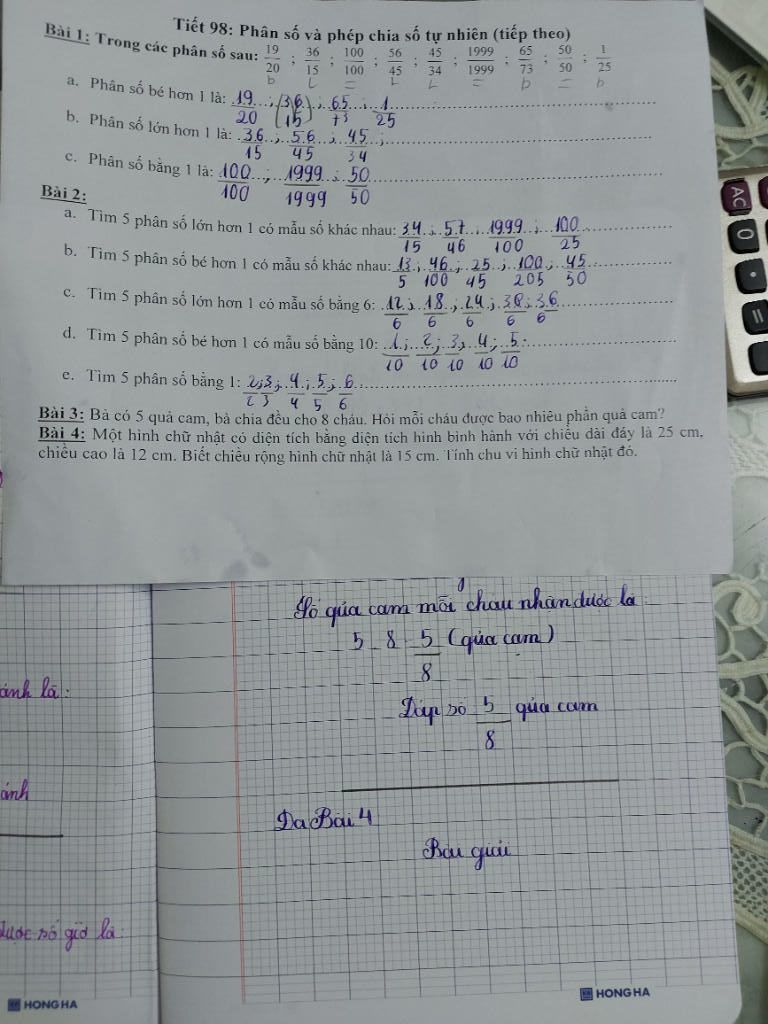 Tiết 98: Phân số và phép chia số tự nhiên (tiếp theo)
Bài 1: Trong các phân số sau: 19/20 ; 36/15 ; 100/100 ; 56/45 ; 45/34 ; 1999/1999 ; 65/73 ; 50/50 ; 1/25
b L = L L = b = b
a. Phân số bé hơn 1 là: 19/20 ; (36/15) ; 65/73 ; 1/25
b. Phân số lớn hơn 1 là: 36/15 ; 56/45 ; 45/34 ;
c. Phân số bằng 1 là: 100/100 ; 1999/1999 ; 50/50
Bài 2:
a. Tìm 5 phân số lớn hơn 1 có mẫu số khác nhau: 34/15 ; 57/46 ; 1999/100 ; 100/25
b. Tìm 5 phân số bé hơn 1 có mẫu số khác nhau: 13/5 ; 46/100 ; 25/45 ; 100/205 ; 45/50
c. Tìm 5 phân số lớn hơn 1 có mẫu số bằng 6: 12/6 ; 18/6 ; 24/6 ; 30/6 ; 36/6
d. Tìm 5 phân số bé hơn 1 có mẫu số bằng 10: 1/10 ; 2/10 ; 3/10 ; 4/10 ; 5/10
e. Tìm 5 phân số bằng 1: 2/2 ; 3/3 ; 4/4 ; 5/5 ; 6/6
Bài 3: Bà có 5 quả cam, bà chia đều cho 8 cháu. Hỏi mỗi cháu được bao nhiêu phần quả cam?
Bài 4: Một hình chữ nhật có diện tích bằng diện tích hình bình hành với chiều dài đáy là 25 cm,
chiều cao là 12 cm. Biết chiều rộng hình chữ nhật là 15 cm. Tính chu vi hình chữ nhật đó.
Số qủa cam mỗi cháu nhận được là
5 8 5/8 (qủa cam)
Đáp số 5/8 qủa cam
Bài 4
Bài giải
ánh là:
ánh
được số giờ là
HONG HA
HONG HA
AC
0
=